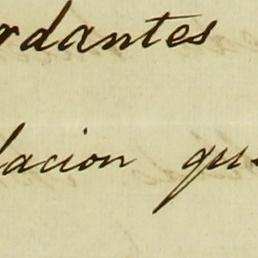 rdantes
lacion que